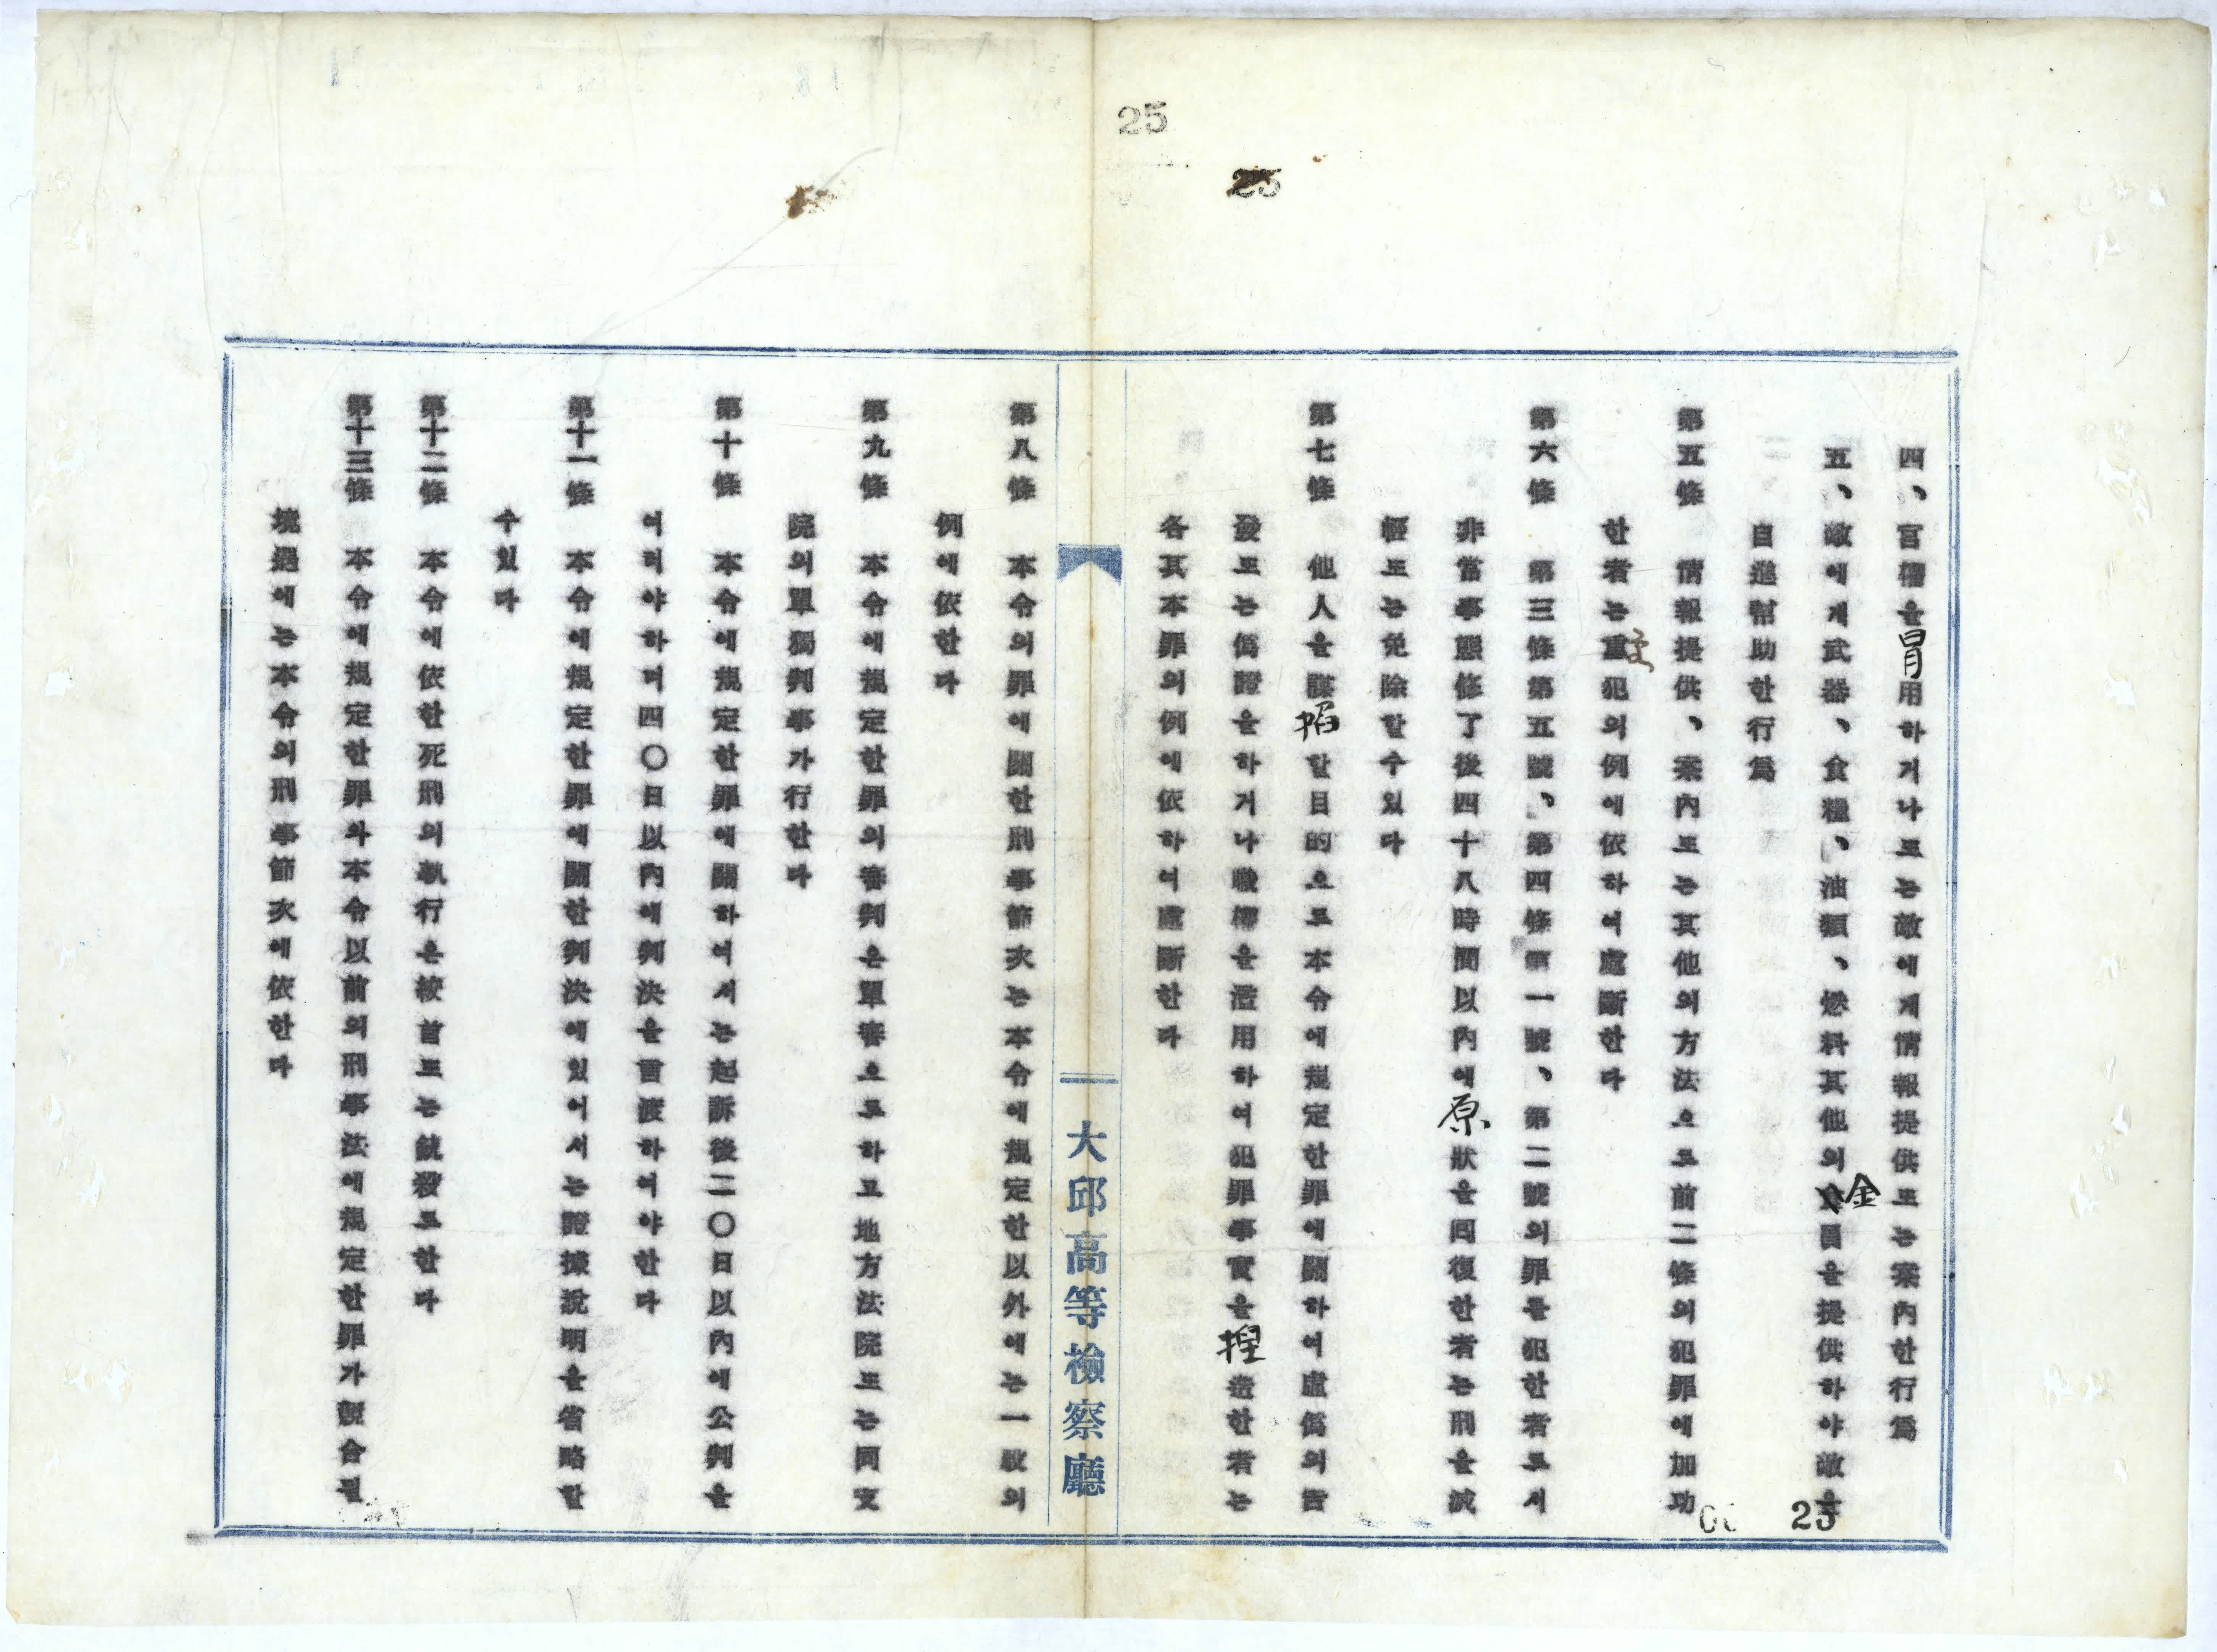 25
25
四、官權을冒用하거나또는敵에게情報提供또는案內한行爲
五、敵에게武器、食糧、油類、燃料其他의金員을提供하야敵을
自進幇助한行爲
第五條 情報提供、案內또는其他의方法으로前二條의犯罪에加功
한者는重犯의例에依하여處斷한다
第六條 第三條第五號、第四條第一號、第二號의罪를犯한者로서
非常事態修了後四十八時間以內에原狀을回復한者는刑을減
輕또는免除할수있다
第七條 他人을謀掐할目的으로本令에規定한罪에關하여虛僞의告
發또는僞證을하거나職權을濫用하여犯罪事實을揑造한者는
各其本罪의例에依하여處斷한다
大邱高等檢察廳
第八條 本令의罪에關한刑事節次는本令에規定한以外에는一般의
例에依한다
第九條 本令에規定한罪의審判은單審으로하고地方法院또는同支
院의單獨判事가行한다
第十條 本令에規定한罪에關하여서는起訴後二〇日以內에公判을
여러야하며四〇日以內에判決을言渡하여야한다
第十一條 本令에規定한罪에關한判決에있어서는證據說明을省略할
수있다
第十二條 本令에依한死刑의執行은絞首또는銃殺로한다
第十三條 本令에規定한罪와本令以前의刑事法에規定한罪가競合될
境遇에는本令의刑事節次에依한다
25